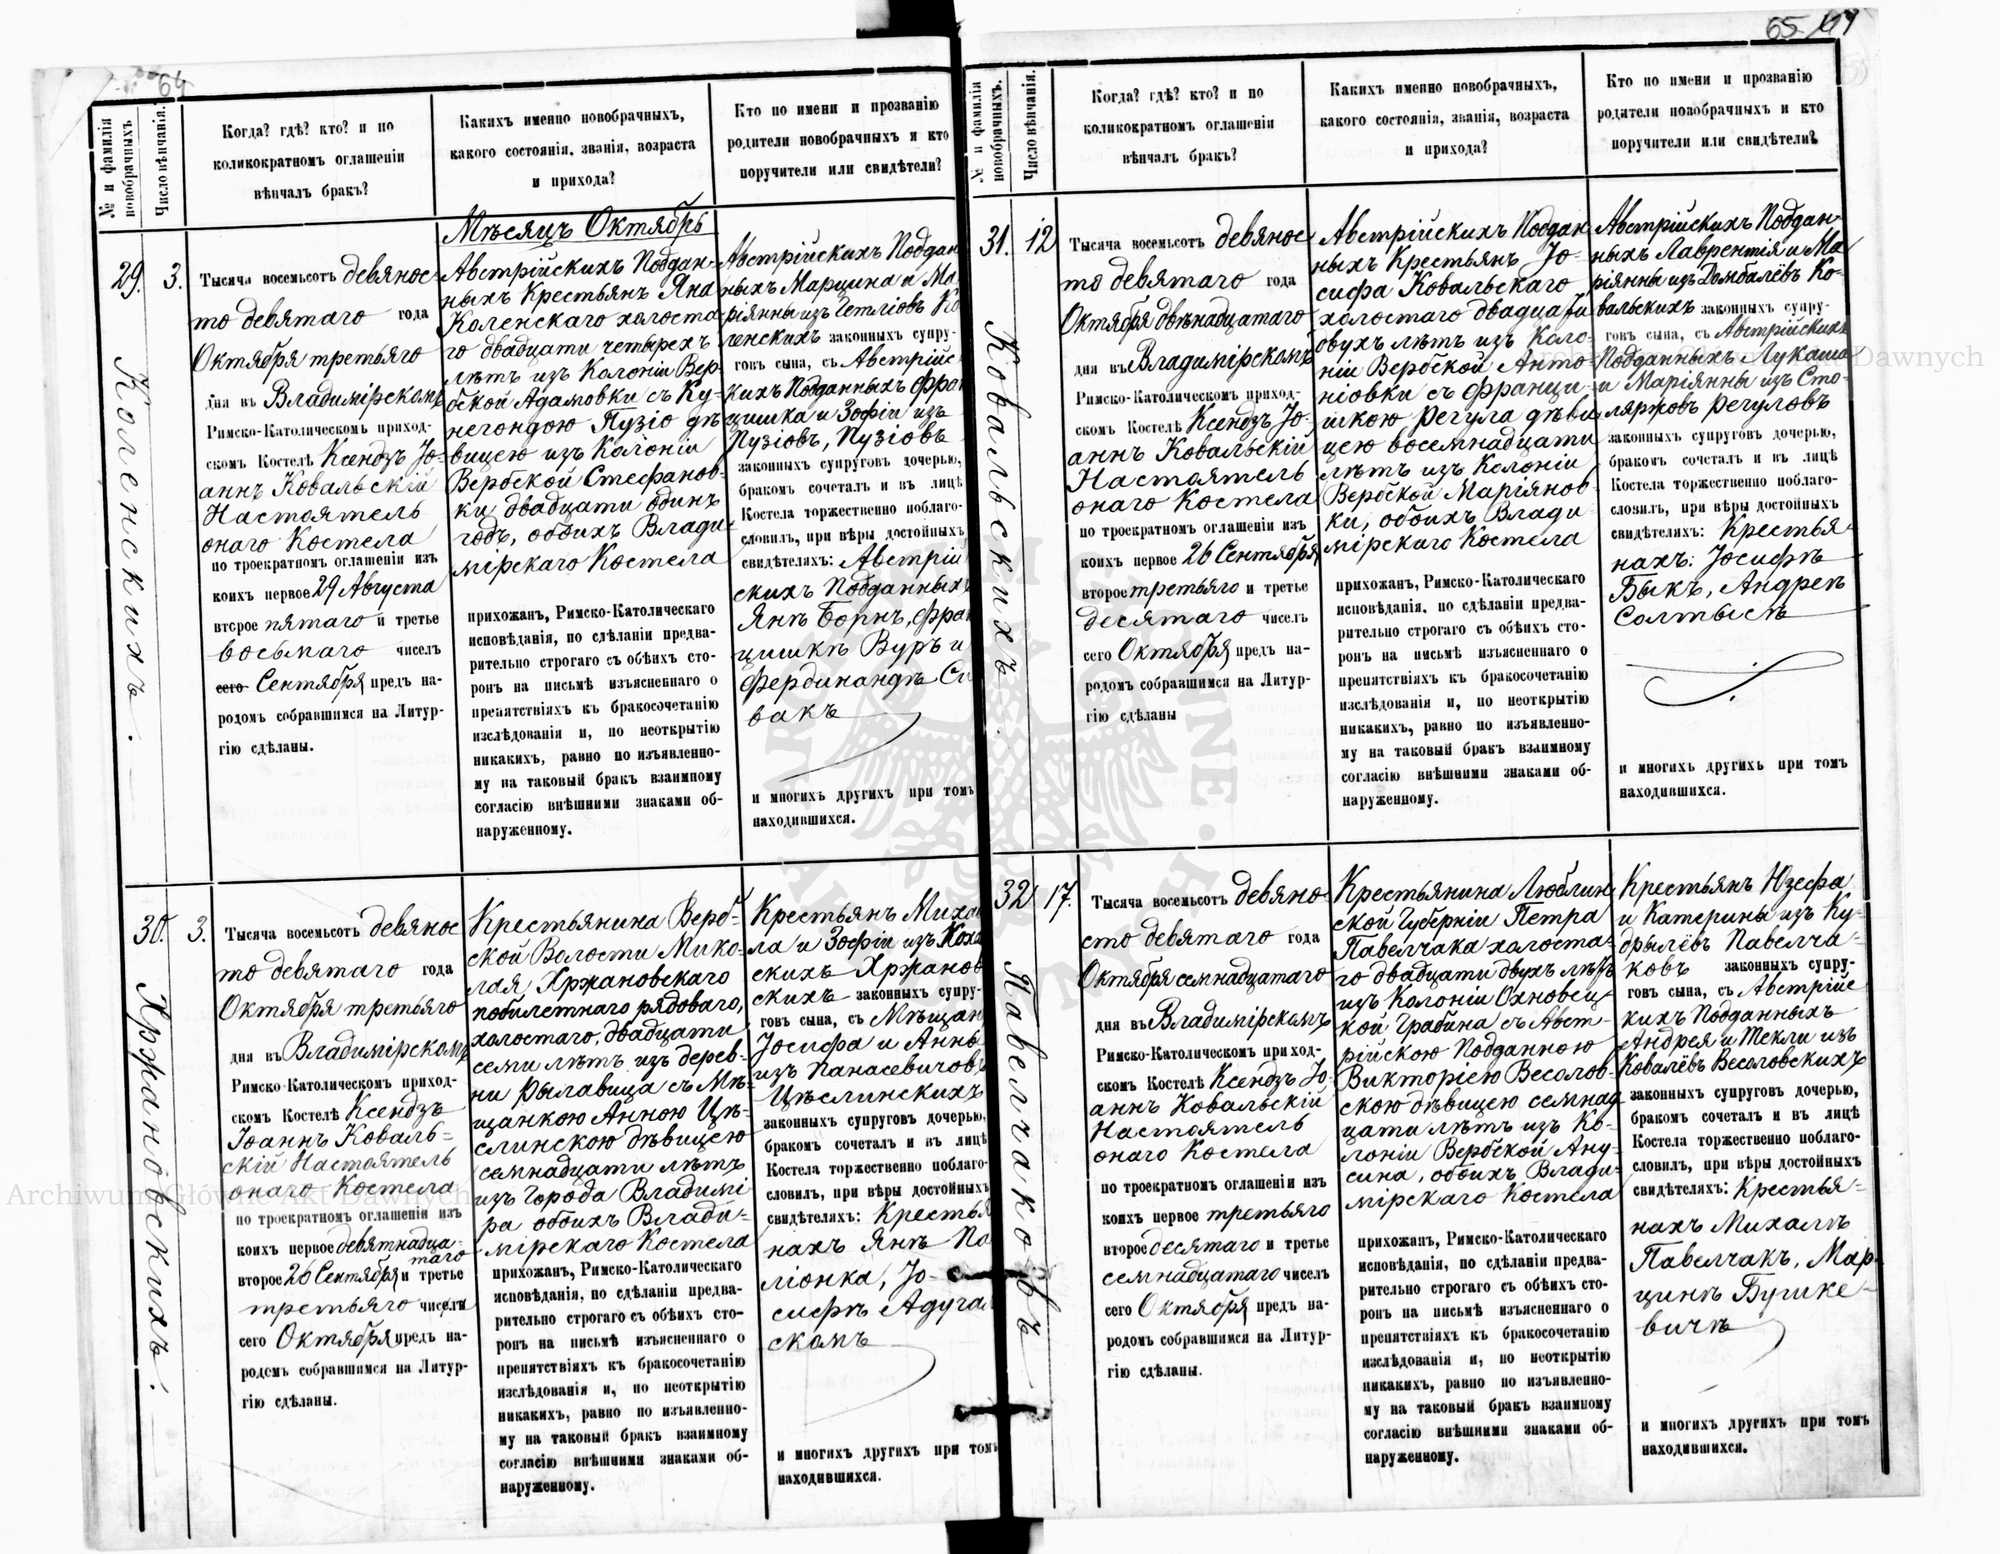 64
№ и фамилія новобрачныхъ
Число вѣнчанія.
Когда? гдѣ? кто? и по
коликократномъ оглашеніи
вѣнчалъ бракъ?
Какихъ именно новобрачныхъ,
какого состоянія, званія, возраста
и прихода?
Кто по имени и прозванію
родители новобрачныхъ и кто
поручители или свидѣтели?
Мѣсяцъ Октябрь
29.
3.
Коленскихъ.
Тысяча восемьсотъ девянос
то девятаго года
Октября третьяго
дня въ Владимірскомъ
Римско-Католическомъ приход-
скомъ Костелѣ Ксендзъ Іо-
аннъ Ковальскій
Настоятель
онаго Костела
по троекратномъ оглашеніи изъ
коихъ первое 29 Августа
второе пятаго и третье
восьмаго чиселъ
сего Сентября предъ на-
родомъ собравшимся на Литур-
гію сдѣланы.
Австрійскихъ Поддан-
ныхъ Крестьянъ Яна
Коленскаго холоста-
го двадцати четырехъ
лѣтъ изъ Колоніи Вер-
бской Адамовки съ Ку-
негондою Пузіо дѣ
вицею изъ Колоніи
Вербской Стефанов-
ки двадцати одинъ
годъ, обоихъ Влади-
мірскаго Костела
прихожан, Римско-Католическаго
исповѣданія, по сдѣланіи предва-
рительно строгаго съ обѣихъ сто-
ронъ на письмѣ изъясненнаго о
препятствіяхъ къ бракосочетанію
изслѣдованія и, по неоткрытію
никакихъ, равно по изъявленно-
му на таковый бракъ взаимному
согласію внѣшними знаками об-
наруженному.
Австрійскихъ Поддан
ныхъ Марцина и Ма
ріянны изъ Гетлiовъ Ко
ленскихъ законныхъ супру-
говъ сына, съ Австрійс
кихъ Подданныхъ Фран
цишка и Зофіи изъ
Пузіовъ, Пузіовъ
законныхъ супруговъ дочерью,
бракомъ сочеталъ и въ лицѣ
Костела торжественно поблаго-
словилъ, при вѣры достойныхъ
свидѣтеляхъ: Австрій
скихъ Подданныхъ
Янѣ Борнъ, Фран
цишкѣ Вуръ и
Фердинандѣ Си
вакъ
и многихъ другихъ при томъ
находившихся.
30.
3.
Хржановскихъ.
Тысяча восемьсотъ девянос
то девятаго года
Октября третьяго
дня въ Владимірскомъ
Римско-Католическомъ приход-
скомъ Костелѣ Ксендзъ
Іоаннъ Коваль=
скій Настоятель
онаго Костела
по троекратномъ оглашеніи изъ
коихъ первое девятнадца-
таго
второе 26 Сентября и третье
третьяго чиселъ
сего Октября предъ на-
родомъ собравшимся на Литур-
гію сдѣланы.
Крестьянина Верб-
ской Волости Мико-
лая Хржановскаго
побилетнаго рядоваго,
холостаго, двадцати
семи лѣтъ изъ дерев-
ни Рылавица съ Мѣ-
щанкою Анною Цѣ-
слинскою дѣвицею
семнадцати лѣтъ
изъ Города Владимі
ра обоихъ Влади-
мірскаго Костела
прихожан, Римско-Католическаго
исповѣданія, по сдѣланіи предва-
рительно строгаго съ обѣихъ сто-
ронъ на письмѣ изъясненнаго о
препятствіяхъ къ бракосочетанію
изслѣдованія и, по неоткрытію
никакихъ, равно по изъявленно-
му на таковый бракъ взаимному
согласію внѣшними знаками об-
наруженному.
Крестьянъ Миха
ла и Зофіи изъ Коха
скихъ Хржанов
скихъ законныхъ супру-
говъ сына, съ Мѣщан
Іосифа и Анны
изъ Панасевичовъ
Цѣслинскихъ
законныхъ супруговъ дочерью,
бракомъ сочеталъ и въ лицѣ
Костела торжественно поблаго-
словилъ, при вѣры достойныхъ
свидѣтеляхъ: Крестья
нахъ Янѣ По
ліонка, Іо-
сифѣ Адугал
скомъ
и многихъ другихъ при томъ
находившихся.
65
№ и фамилія новобрачныхъ.
Число вѣнчанія.
Когда? гдѣ? кто? и по
коликократномъ оглашеніи
вѣнчалъ бракъ?
Какихъ именно новобрачныхъ,
какого состоянія, званія, возраста
и прихода?
Кто по имени и прозванію
родители новобрачныхъ и кто
поручители или свидѣтели?
31.
12
Ковальскихъ.
Тысяча восемьсотъ девянос
то девятаго года
Октября двѣнадцатаго
дня въ Владимірскомъ
Римско-Католическомъ приход-
скомъ Костелѣ Ксендзъ Іо-
аннъ Ковальскій
Настоятель
онаго Костела
по троекратномъ оглашеніи изъ
коихъ первое 26 Сентября
второе третьяго и третье
десятаго чиселъ
сего Октября предъ на-
родомъ собравшимся на Литур-
гію сдѣланы
Австрійскихъ Поддан
ныхъ Крестьянъ Іо-
сифа Ковальскаго
холостаго двадцати
двухъ лѣтъ изъ Коло-
ніи Вербской Анто-
ніовки съ Францы-
шкою Регула дѣви
цею восемнадцати
лѣтъ изъ Колоніи
Вербской Маріянов-
ки, обоихъ Влади-
мірскаго Костела
прихожан, Римско-Католическаго
исповѣданія, по сдѣланіи предва-
рительно строгаго съ обѣихъ сто-
ронъ на письмѣ изъясненнаго о
препятствіяхъ къ бракосочетанію
изслѣдованія и, по неоткрытію
никакихъ, равно по изъявленно-
му на таковый бракъ взаимному
согласію внѣшними знаками об-
наруженному.
Австрійскихъ Поддан-
ныхъ Лаврентія и Ма
ріянны изъ Домбалёвъ Ко-
вальскихъ законныхъ супру-
говъ сына, съ Австрійскихъ
Подданныхъ Лукаша
и Маріянны изъ Сто-
ляржовъ Регуловъ
законныхъ супруговъ дочерью,
бракомъ сочеталъ и въ лицѣ
Костела торжественно поблаго-
словилъ, при вѣры достойныхъ
свидѣтеляхъ: Крестья-
нахъ: Іосифѣ
Быкъ, Андреѣ
Солтысѣ
и многихъ другихъ при томъ
находившихся.
32
17.
Павелчаковъ
Тысяча восемьсотъ девяно-
сто девятаго года
Октября семнадцатаго
дня въ Владимірскомъ
Римско-Католическомъ приход-
скомъ Костелѣ Ксендзъ Іо-
аннъ Ковальскій
Настоятель
онаго Костела
по троекратномъ оглашеніи изъ
коихъ первое третьяго
второе десятаго и третье
семнадцатаго чиселъ
сего Октября предъ на-
родомъ собравшимся на Литур-
гію сдѣланы.
Крестьянина Люблин
ской Губерніи Петра
Павелчака холоста-
го двадцати двухъ лѣтъ
изъ Колоніи Охновец-
кой Грабина съ Авст-
рійскою Подданною
Викторіею Весолов-
скою дѣвицею семнад
цати лѣтъ изъ Ко-
лоніи Вербской Ану-
сина, обоихъ Влади-
мірскаго Костела
прихожан, Римско-Католическаго
исповѣданія, по сдѣланіи предва-
рительно строгаго съ обѣихъ сто-
ронъ на письмѣ изъясненнаго о
препятствіяхъ къ бракосочетанію
изслѣдованія и, по неоткрытію
никакихъ, равно по изъявленно-
му на таковый бракъ взаимному
согласію внѣшними знаками об-
наруженному.
Крестьянъ Юзефа
и Катерины изъ Ку-
дрылёвъ Павелча-
ковъ законныхъ супру-
говъ сына, съ Австрійс
кихъ Подданныхъ
Андрея и Текли изъ
Ковалёвъ Весоловскихъ
законныхъ супруговъ дочерью,
бракомъ сочеталъ и въ лицѣ
Костела торжественно поблаго-
словилъ, при вѣры достойныхъ
свидѣтеляхъ: Крестья=
нахъ Михалѣ
Павелчакъ, Мар-
цинѣ Бушке-
вичѣ
и многихъ другихъ при томъ
находившихся.
Archiwum Główne Akt Dawnych
Archiwum Główne Akt Dawnych